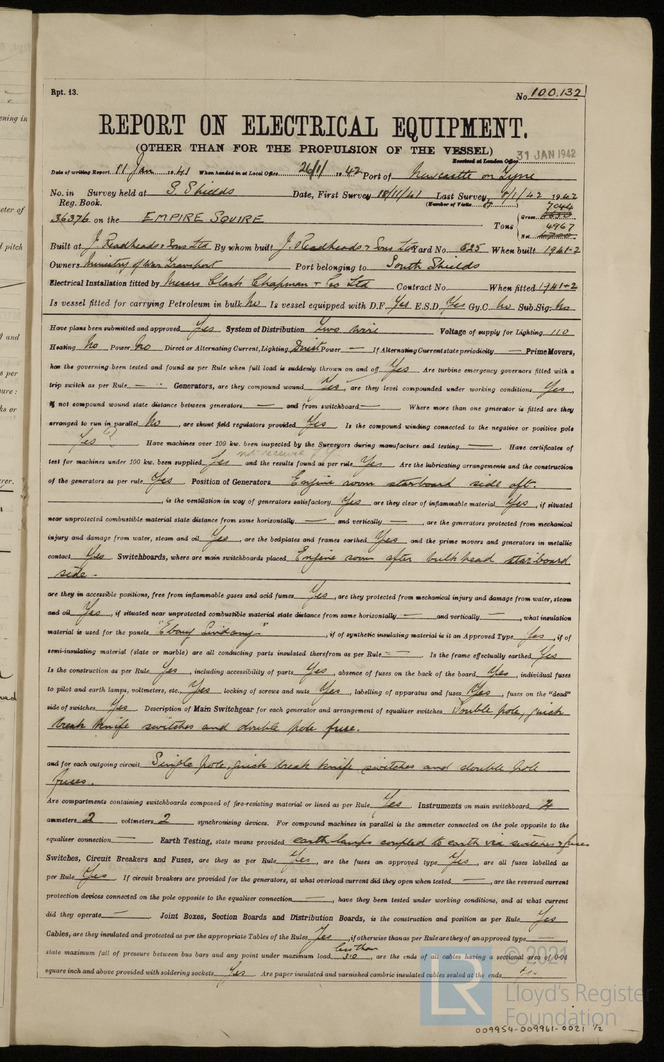 Rpt. 13.
No. 100.132
REPORT ON ELECTRICAL EQUIPMENT.
(OTHER THAN FOR THE PROPULSION OF THE VESSEL)
Received at London Office 31 JAN 1942
Date of writing Report 11 Jan 1941 When handed in at Local Office 26/1/1942 Port of Newcastle on Tyne
No. in Survey held at S. Shields Date, First Survey 18/11/41 Last Survey 9/1/42 1942
Reg. Book. (Number of Visits
36376 on the EMPIRE SQUIRE Tons Gross 7044 Net 4967
Built at J. Readhead & Sons Ltd By whom built J. Readhead & Sons Ltd Yard No. 525 When built 1941-2
Owners Ministry of War Transport Port belonging to South Shields
Electrical Installation fitted by Messrs Clark Chapman & Co Ltd Contract No. When fitted 1941-2
Is vessel fitted for carrying Petroleum in bulk No Is vessel equipped with D.F. Yes E.S.D. Yes Gy.C. No Sub.Sig. No
Have plans been submitted and approved Yes System of Distribution Two wire Voltage of supply for Lighting 110
Heating No Power No Direct or Alternating Current, Lighting Direct Power — If Alternating Current state periodicity — Prime Movers,
has the governing been tested and found as per Rule when full load is suddenly thrown on and off Yes Are turbine emergency governors fitted with a
trip switch as per Rule — Generators, are they compound wound Yes, are they level compounded under working conditions Yes,
if not compound wound state distance between generators — and from switchboard — Where more than one generator is fitted are they
arranged to run in parallel No, are shunt field regulators provided Yes Is the compound winding connected to the negative or positive pole
Yes Have machines over 100 kw. been inspected by the Surveyors during manufacture and testing — Have certificates of
test for machines under 100 kw. been supplied Yes and the results found as per rule Yes Are the lubricating arrangements and the construction
of the generators as per rule Yes Position of Generators Engine room starboard side aft.
, is the ventilation in way of generators satisfactory Yes are they clear of inflammable material Yes, if situated
near unprotected combustible material state distance from same horizontally — and vertically —, are the generators protected from mechanical
injury and damage from water, steam and oil Yes, are the bedplates and frames earthed Yes and the prime movers and generators in metallic
contact Yes Switchboards, where are main switchboards placed Engine room after bulkhead starboard
side.
are they in accessible positions, free from inflammable gases and acid fumes Yes, are they protected from mechanical injury and damage from water, steam
and oil Yes, if situated near unprotected combustible material state distance from same horizontally — and vertically —, what insulation
material is used for the panels "Ebony Sindanyo", if of synthetic insulating material is it an Approved Type Yes, if of
semi-insulating material (slate or marble) are all conducting parts insulated therefrom as per Rule — Is the frame effectually earthed Yes
Is the construction as per Rule Yes, including accessibility of parts Yes, absence of fuses on the back of the board Yes, individual fuses
to pilot and earth lamps, voltmeters, etc. Yes locking of screws and nuts Yes, labelling of apparatus and fuses Yes, fuses on the "dead"
side of switches Yes Description of Main Switchgear for each generator and arrangement of equaliser switches Double pole, quick
break knife switches and double pole fuse.
and for each outgoing circuit Single pole, quick break knife switches and double pole
fuses.
Are compartments containing switchboards composed of fire-resisting material or lined as per Rule Yes Instruments on main switchboard 2
ammeters 2 voltmeters 2 synchronising devices. For compound machines in parallel is the ammeter connected on the pole opposite to the
equaliser connection — Earth Testing, state means provided earth lamps coupled to earth via switches & fuses
Switches, Circuit Breakers and Fuses, are they as per Rule Yes, are the fuses an approved type Yes, are all fuses labelled as
per Rule Yes If circuit breakers are provided for the generators, at what overload current did they open when tested —, are the reversed current
protection devices connected on the pole opposite to the equaliser connection —, have they been tested under working conditions, and at what current
did they operate — Joint Boxes, Section Boards and Distribution Boards, is the construction as per Rule Yes
Cables, are they insulated and protected as per the appropriate Tables of the Rules Yes, if otherwise than as per Rule are they of an approved type —
state maximum fall of pressure between bus bars and any point under maximum load less than 3.0, are the ends of all cables having a sectional area of 0·04
square inch and above provided with soldering sockets Yes Are paper insulated and varnished cambric insulated cables sealed at the ends
© 2021
LR
Lloyd's Register
Foundation
009954-009961-0021 1/2